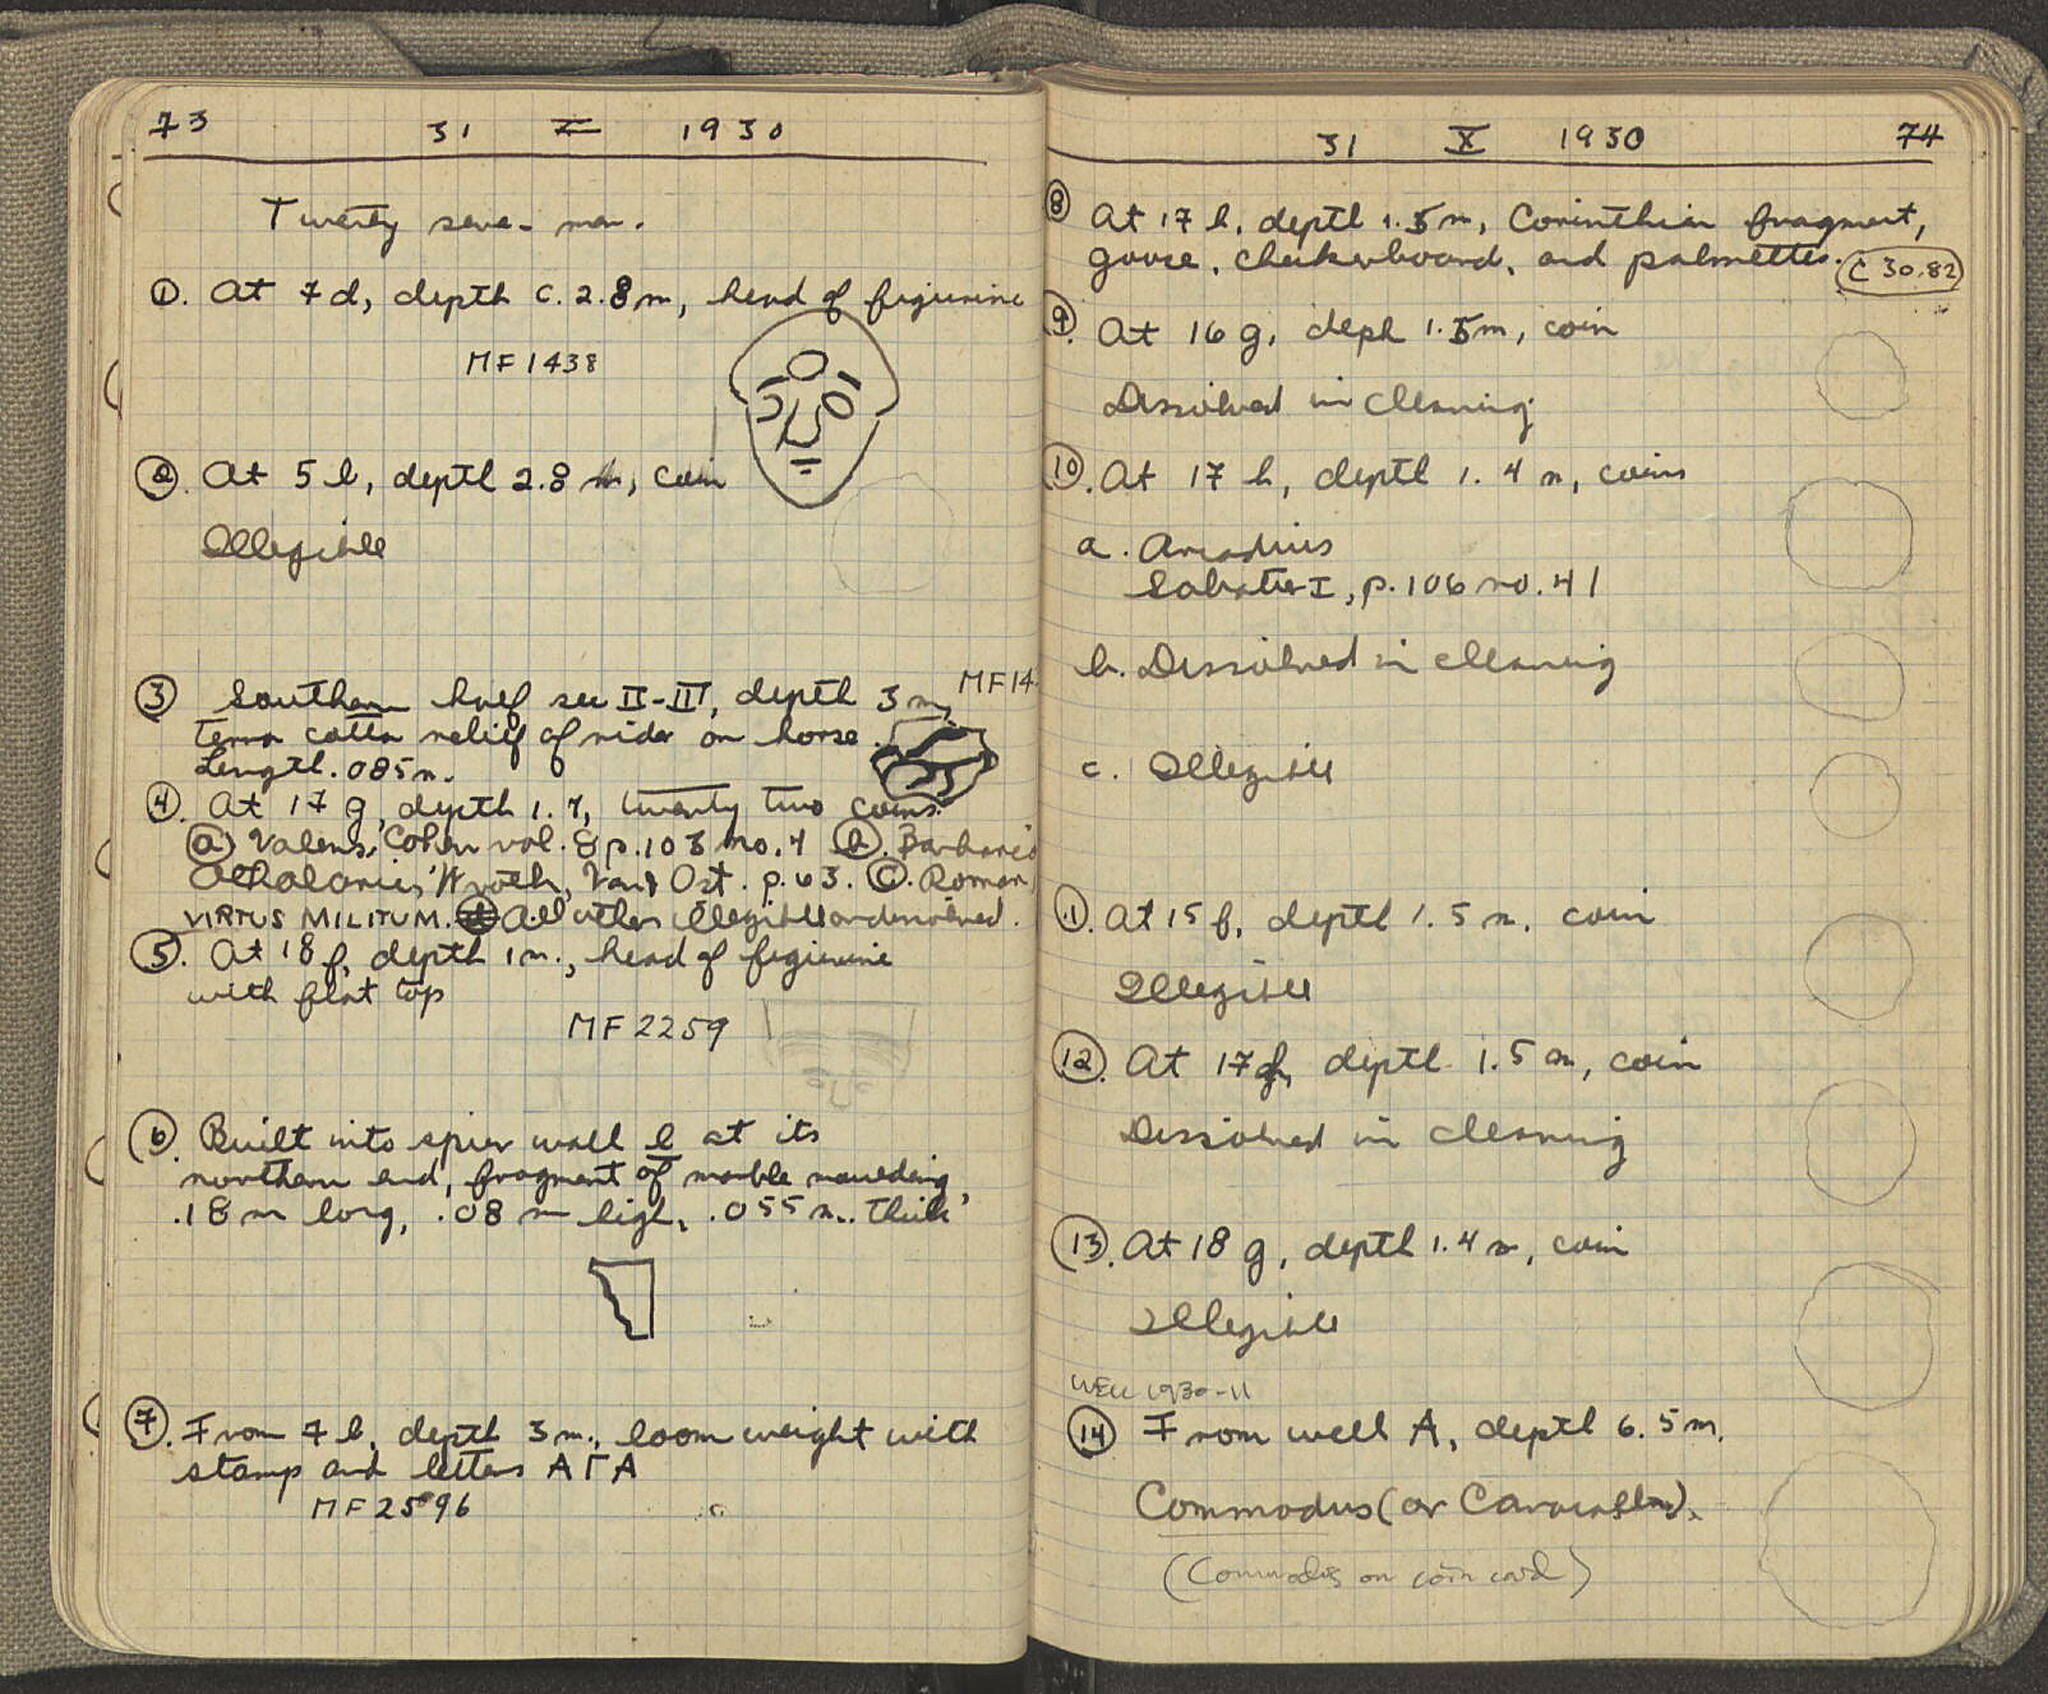 73 31 X 1930
Twenty seven men.
①. At 7d, depth c. 2.8 m, head of figurine
MF 1438
②. At 5 l, depth 2.8 m, coin
Illegible
③ Southern half sec II-III, depth 3 m, MF 14
terra cotta relief of rider on horse.
Length .085 m.
④. At 17 g, depth 1.4, twenty two coins.
ⓐ Valens, Cohen vol. 8 p. 103 no. 4 ⓑ. Barbaric
Athalaric, Wroth, Vand Ost. p. 63. ⓒ. Roman,
VIRTUS MILITUM. ⓓ All others illegible or dissolved.
⑤. At 18 f, depth 1 m., head of figurine
with flat top
MF 2259
⑥. Built into spur wall l at its
northern end, fragment of marble moulding,
.18 m long, .08 m high, .055 m. thick
⑦. From 7 l, depth 3 m., loom weight with
stamp and letters ΑΓΑ
MF 2596
31 X 1930 74
⑧ At 17 h, depth 1.5 m, Corinthian fragment,
goose, checkerboard, and palmettes. C 30.82
⑨. At 16 g, deph 1.5 m, coin
Dissolved in cleaning
⑩. At 17 h, depth 1.4 m, coins
a. Arcadius
Sabatier I, p. 106 no. 41
b. Dissolved in cleaning
c. Illegible
⑪. At 15 f, depth 1.5 m, coin
Illegible
⑫. At 17 f, depth 1.5 m, coin
Dissolved in cleaning
⑬. At 18 g, depth 1.4 m, coin
Illegible
WELL 1930-11
⑭ From well A, depth 6.5 m.
Commodus (or Caracalla).
(Commodus on coin card)